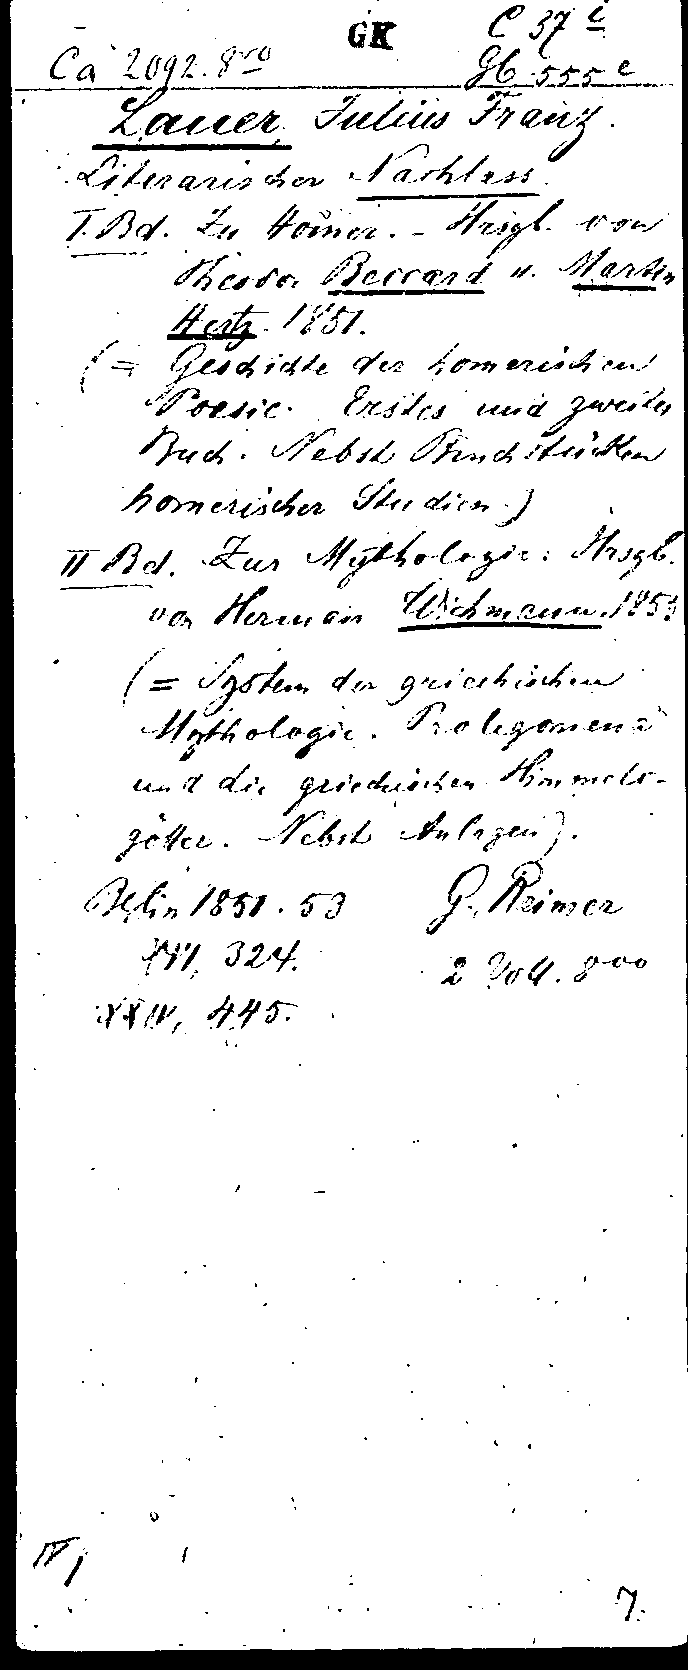 GK
C 37 i
Ca 2092. 8vo
Gb 555 c
Lauer, Julius Franz.
Literarischer Nachlass.
I. Bd. Zu Homer. - Hrsgb. von
Theodor Beccard u. Martin
Hertz. 1851.
(= Geschichte der homerischen
Poesie. Erstes und zweites
Buch. Nebst Bruchstücken
homerischer Studien.)
II Bd. Zur Mythologie. Hrsgb.
von Herman Wichmann. 1853
(= System der griechischen
Mythologie. Prolegomena
und die griechischen Himmels-
götter. Nebst Anlagen).
Berlin 1851. 53 G. Reimer
XVI, 324. 2 Voll. 8vo
XXIV, 445.
IV
7.